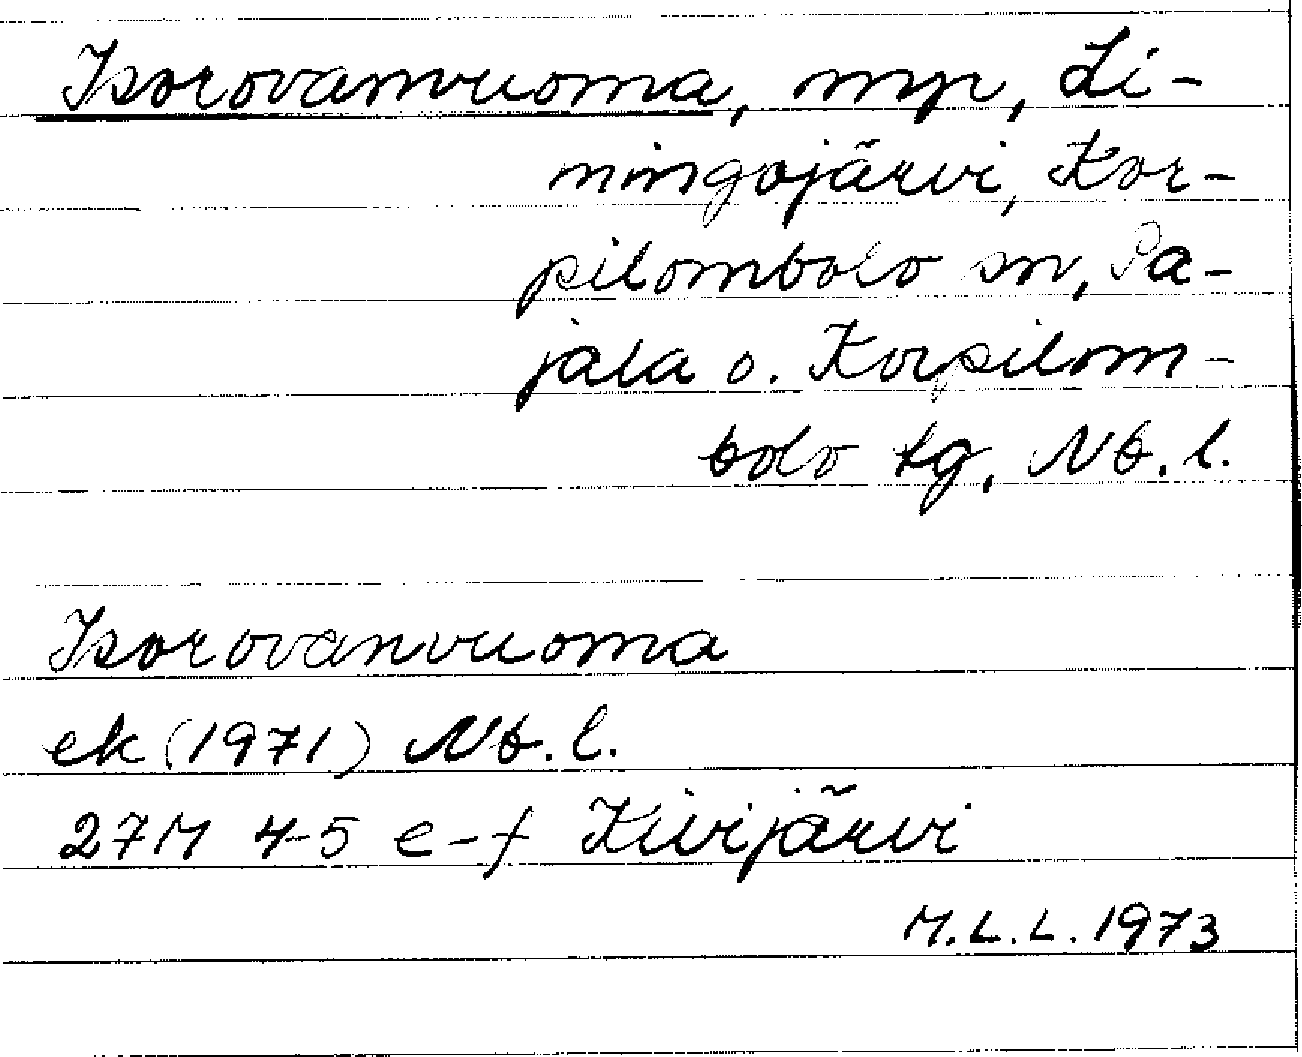 Isorovanvuoma, myr, Li-
ningojärvi, Kor-
pilombolo sn, Pa-
jala o. Korpilom-
bolo tg, Nb. l.
Isorovanvuoma
ek (1971) Nb. l.
27M 4-5 e-f Kivijärvi
M.L.L. 1973